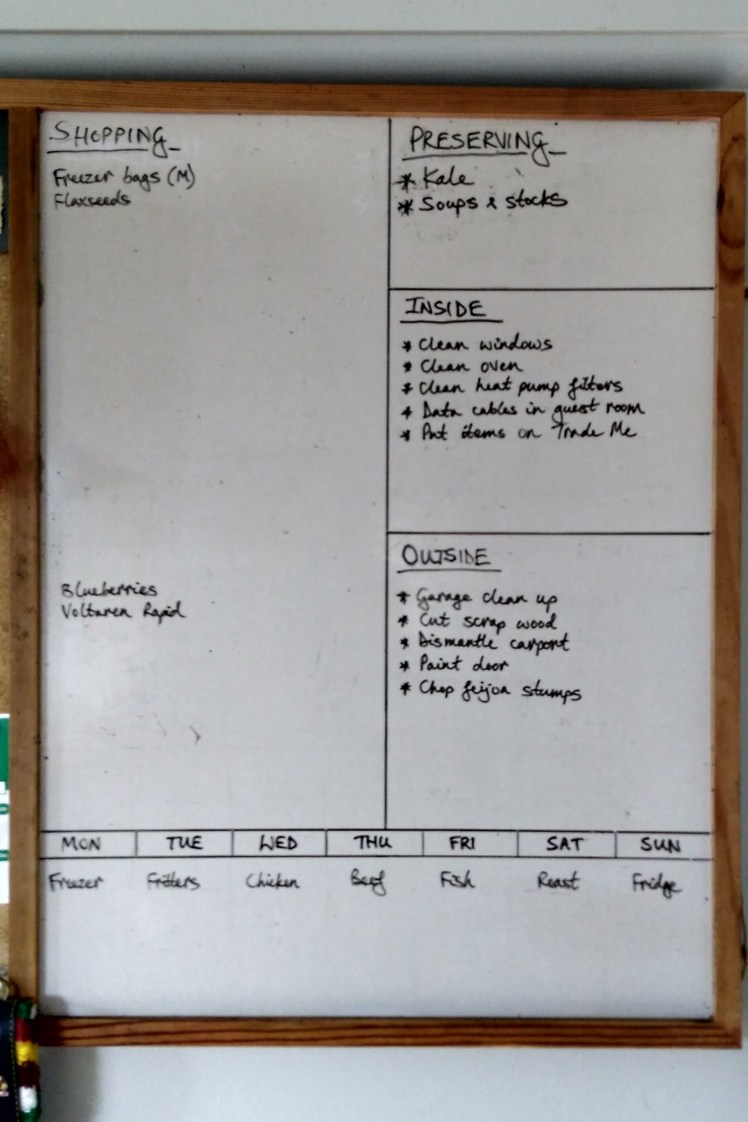 SHOPPING
Freezer bags (M)
Flaxseeds
Blueberries
Voltaren Rapid
PRESERVING
* Kale
* Soups & stocks
INSIDE
* Clean windows
* Clean oven
* Clean heat pump filters
* Data cables in guest room
* Put items on Trade Me
OUTSIDE
* Garage clean up
* Cut scrap wood
* Dismantle carport
* Paint door
* Chop feijoa stumps
MON TUE WED THU FRI SAT SUN
Freezer Fritters Chicken Beef Fish Roast Fridge